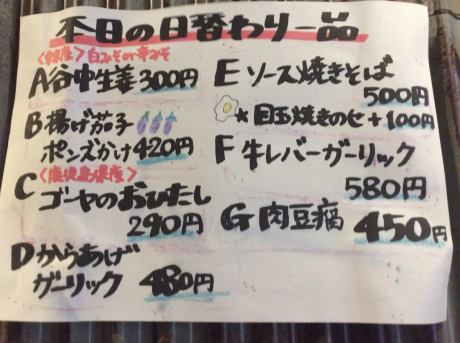 本日の日替わり一品
白みそor辛みそ
A谷中生姜300円
B揚げ茄子
ポンズかけ420円
〈鹿児島県産〉
Cゴーヤのおひたし
290円
Dからあげ
ガーリック 480円
Eソース焼きそば
500円
*目玉焼きのせ+100円
F牛レバーガーリック
580円
G肉豆腐 450円